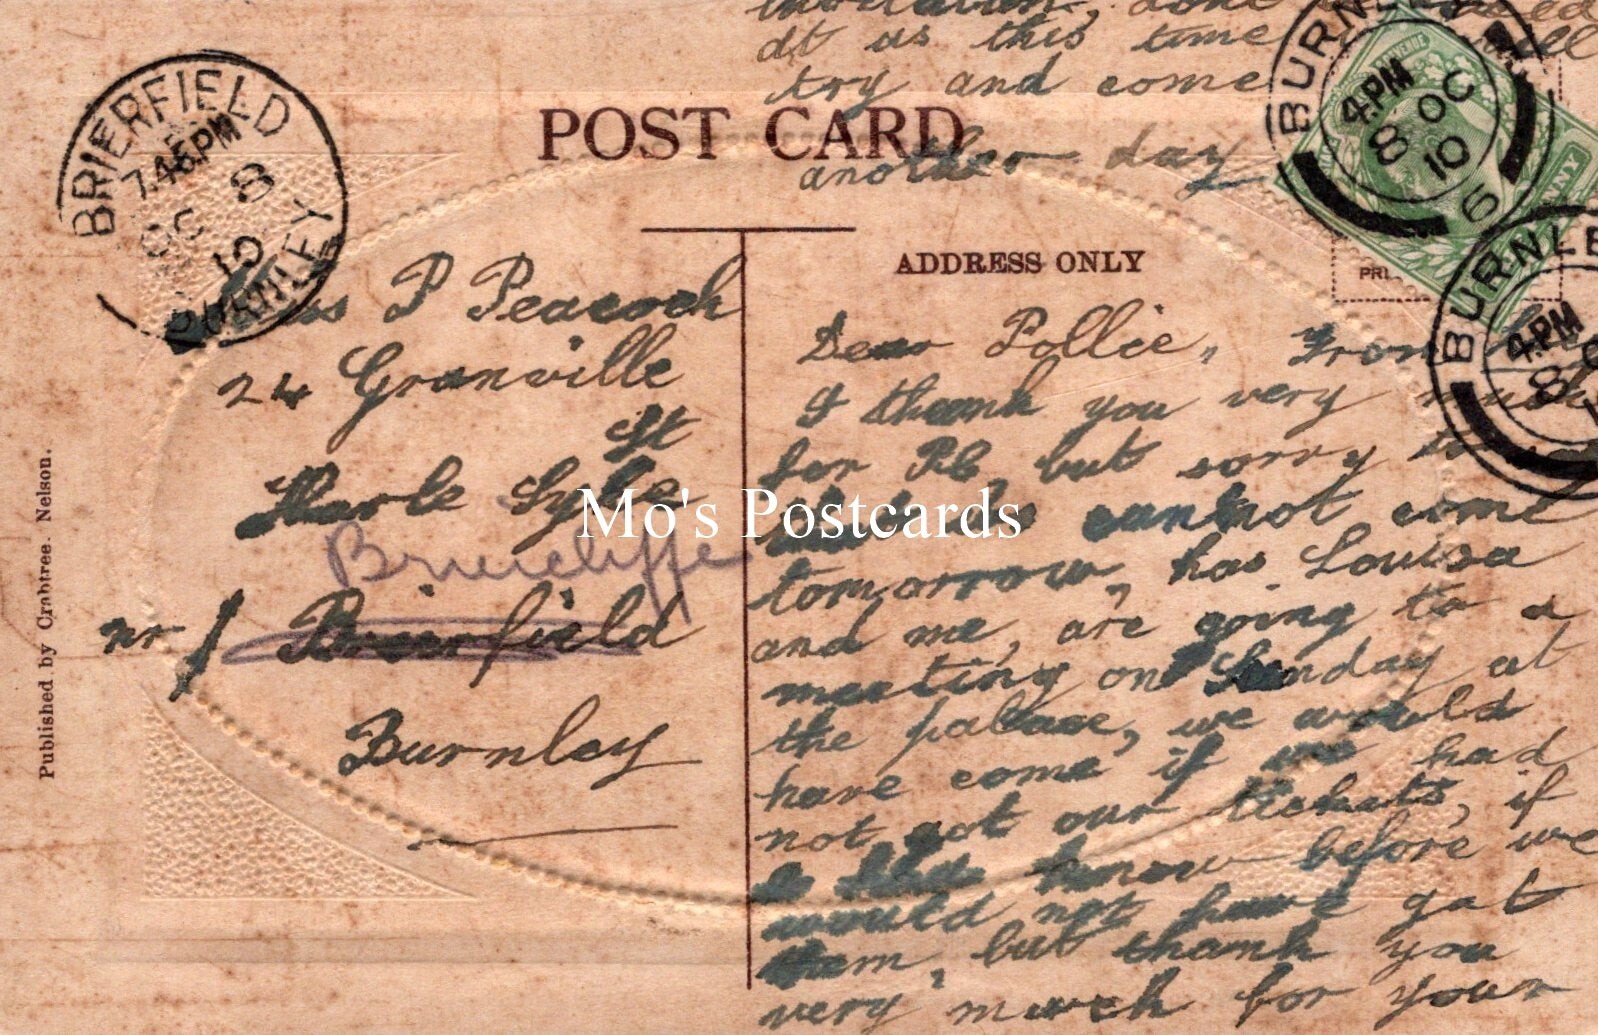 BRIERFIELD
7.45PM
OC 8
10
BURNLEY
POST CARD
Miss P Peacock
24 Granville
St
Harle Syke
Briercliffe
nr Brierfield
Burnley
Published by Crabtree. Nelson.
ADDRESS ONLY
Dear Pollie, From
I thank you very much
for P.C, but sorry to
cannot come
tomorrow, has Louisa
and me, are going to a
meeting on Sunday at
the palace, we would
have come if we had
not got our tickets, if
know before we
would not have got
them, but thank you
very much for your
invitation,
at as this time
try and come
another day
BURNLEY
4.PM
8 OC
10
6
PENNY
BURNLE
4.PM
8
Mo's Postcards